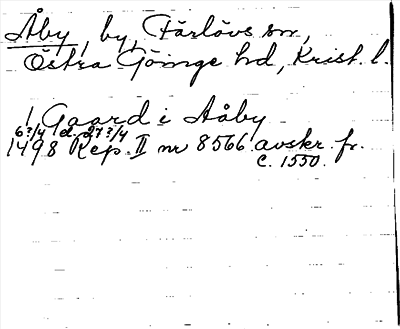 Åby, by, Färlövs sn,
Östra Göinge hd, Krist. l.
1 Gaard i Aåby
6?/4 d. 27?/4
1498 Rep. II nr 8566 avskr. fr.
c. 1550.